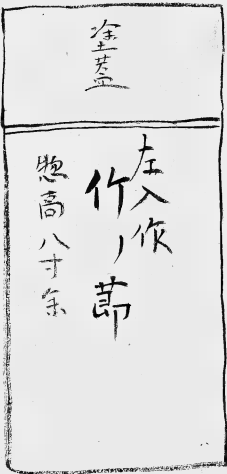 塗蓋
左入作
竹ノ節
惣高八寸余